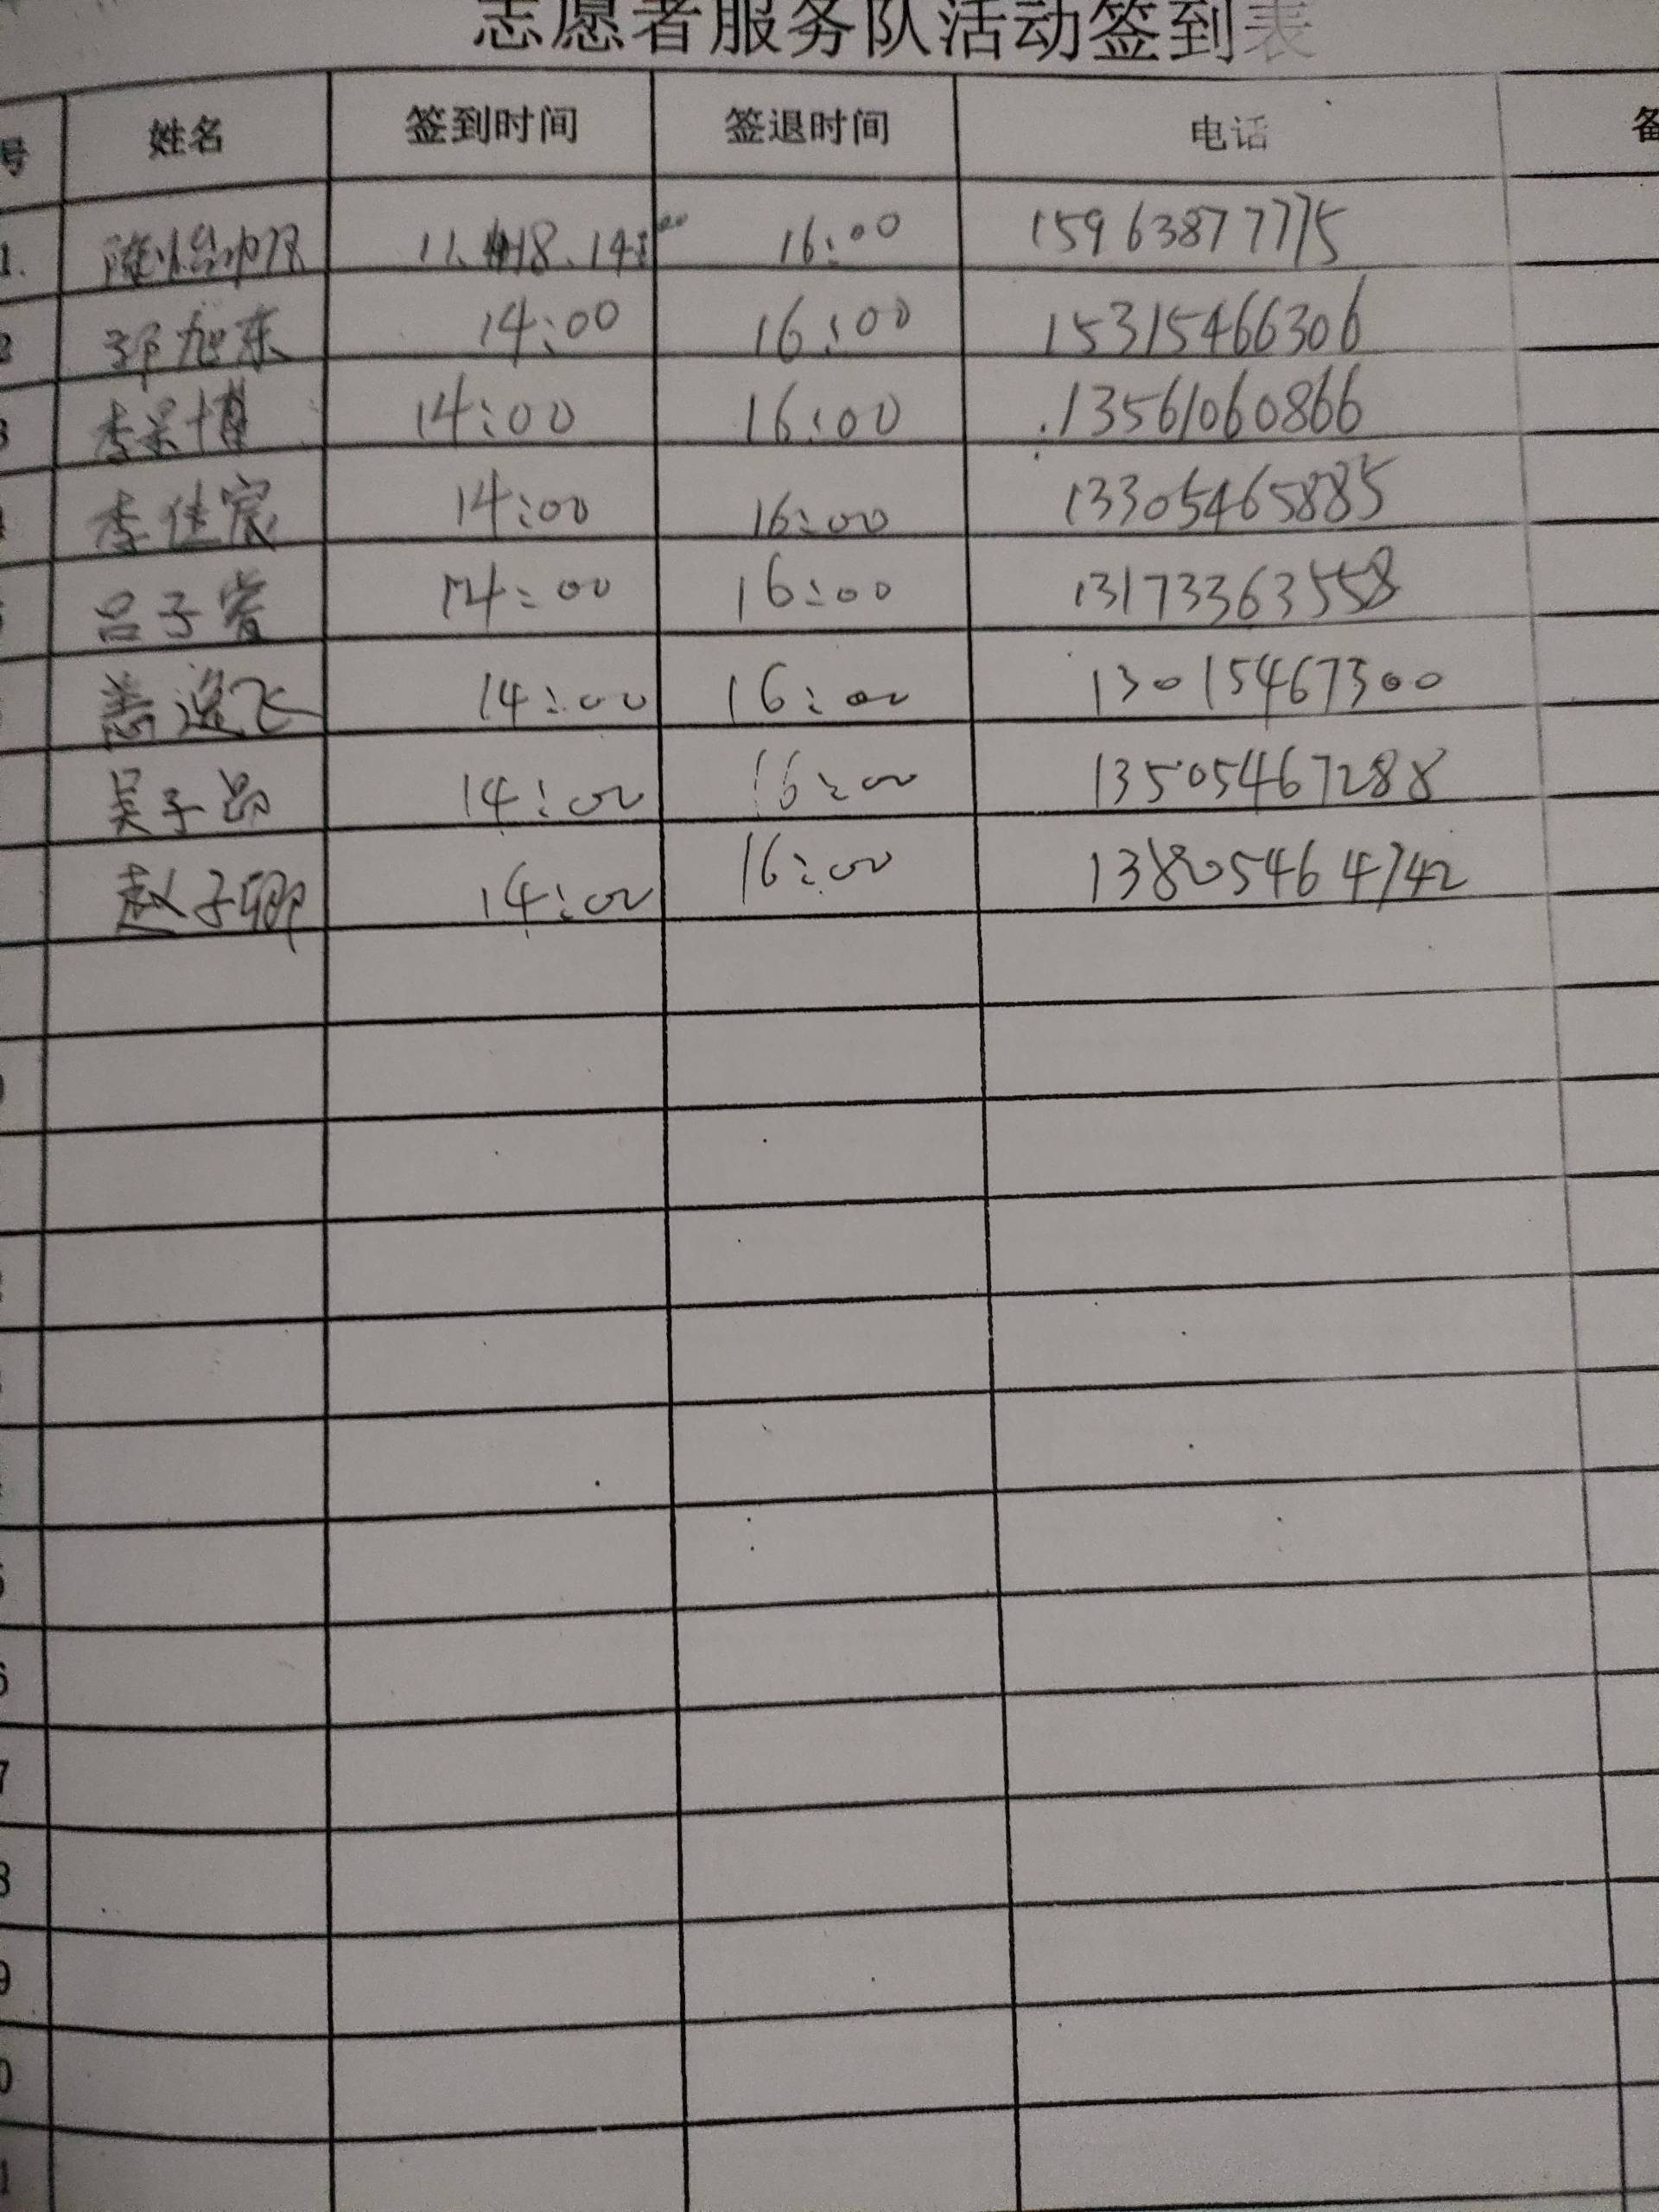 志愿者服务队活动签到表
号 姓名 签到时间 签退时间 电话 备
1. 11.18.14:00 16:00 15963877775
2 邹旭东 14:00 16:00 15315466306
3 李昊博 14:00 16:00 13561060866
李佳宸 14:00 16:00 13305465885
吕子睿 14:00 16:00 13173363558
盖逸飞 14:00 16:00 13015467300
吴子昂 14:00 16:00 13505467288
赵子卿 14:00 16:00 13805464742
6
7
8
9
0
1